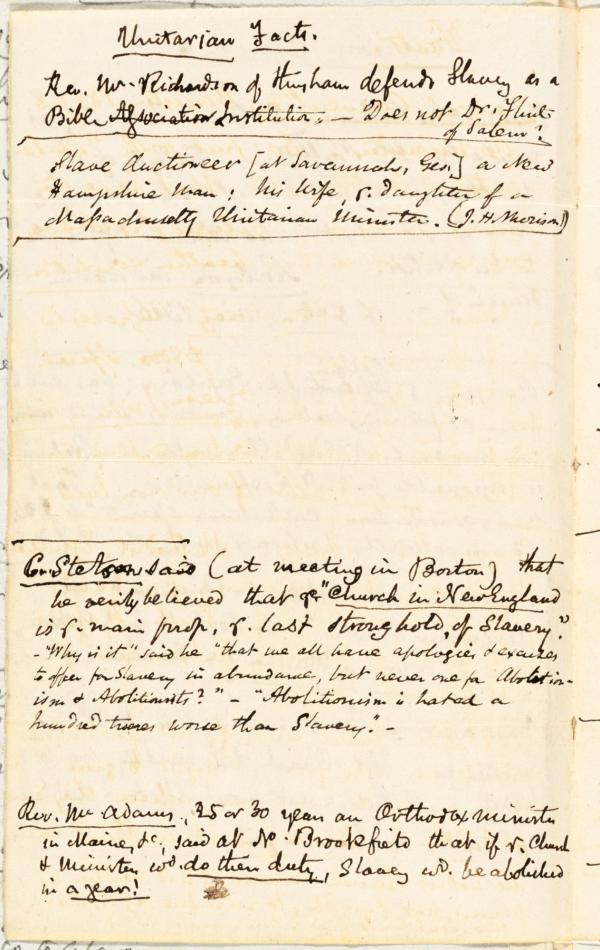 Unitarian Facts.
Rev. Mr. Richardson of Hingham defends Slavery as a
Bible Association Institution. — Does not Dr. Flint
of Salem?
Slave Auctioneer [at Savannah, Geo.] a New
Hampshire man; his wife, ye. daughter of a
Massachusetts Unitarian minister. (J. H. Morison)
C. Stetson said (at meeting in Boston) that
he verily believed that ye. "Church in New England
is ye. main prop, ye. last stronghold, of Slavery."
- "Why is it" said he "that we all have apologies & excuses
to offer for Slavery in abundance, but never one for Abolition-
ism & Abolitionists?" - "Abolitionism is hated a
hundred times worse than Slavery." -
Rev. Mr. Adams, 25 or 30 years an Orthodox minister
in Maine, &c, said at No. Brookfield that if ye. Church
& Ministers wd. do their duty, Slavery wd. be abolished
in a year!